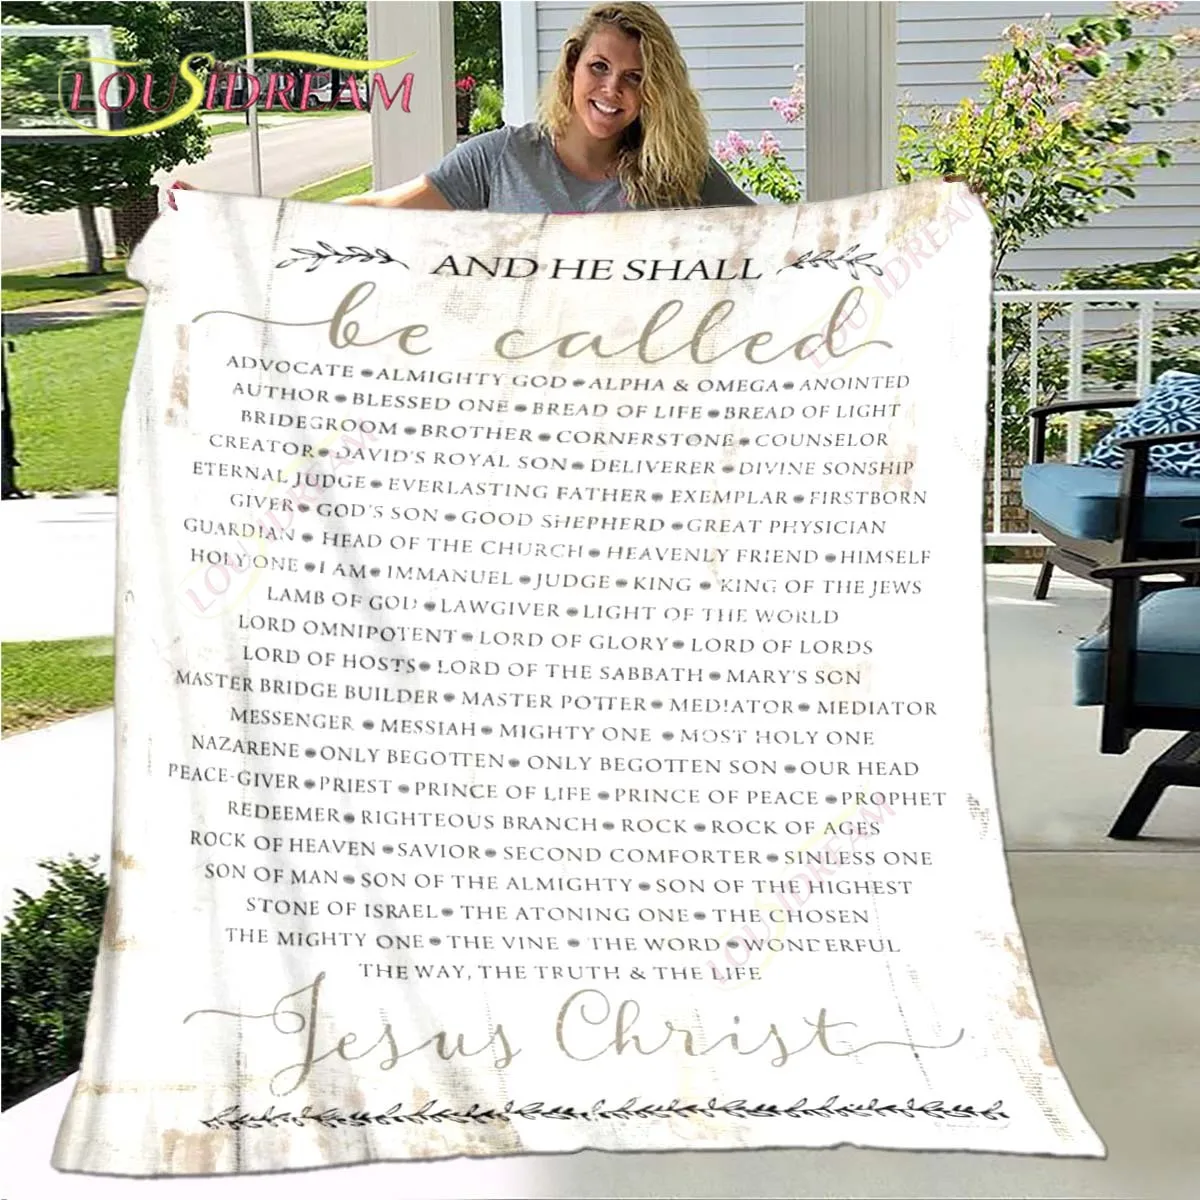 LOUSIDREAM
AND HE SHALL
be called
ADVOCATE • ALMIGHTY GOD • ALPHA & OMEGA • ANOINTED
AUTHOR • BLESSED ONE • BREAD OF LIFE • BREAD OF LIGHT
BRIDEGROOM • BROTHER • CORNERSTONE • COUNSELOR
CREATOR • DAVID'S ROYAL SON • DELIVERER • DIVINE SONSHIP
ETERNAL JUDGE • EVERLASTING FATHER • EXEMPLAR • FIRSTBORN
GIVER • GOD'S SON • GOOD SHEPHERD • GREAT PHYSICIAN
GUARDIAN • HEAD OF THE CHURCH • HEAVENLY FRIEND • HIMSELF
HOLY ONE • I AM • IMMANUEL • JUDGE • KING • KING OF THE JEWS
LAMB OF GOD • LAWGIVER • LIGHT OF THE WORLD
LORD OMNIPOTENT • LORD OF GLORY • LORD OF LORDS
LORD OF HOSTS • LORD OF THE SABBATH • MARY'S SON
MASTER BRIDGE BUILDER • MASTER POTTER • MED!ATOR • MEDIATOR
MESSENGER • MESSIAH • MIGHTY ONE • MOST HOLY ONE
NAZARENE • ONLY BEGOTTEN • ONLY BEGOTTEN SON • OUR HEAD
PEACE-GIVER • PRIEST • PRINCE OF LIFE • PRINCE OF PEACE • PROPHET
REDEEMER • RIGHTEOUS BRANCH • ROCK • ROCK OF AGES
ROCK OF HEAVEN • SAVIOR • SECOND COMFORTER • SINLESS ONE
SON OF MAN • SON OF THE ALMIGHTY • SON OF THE HIGHEST
STONE OF ISRAEL • THE ATONING ONE • THE CHOSEN
THE MIGHTY ONE • THE VINE • THE WORD • WONDERFUL
THE WAY, THE TRUTH & THE LIFE
Jesus Christ
LOUSIDREAM
LOUSIDREAM
LOUSIDREAM